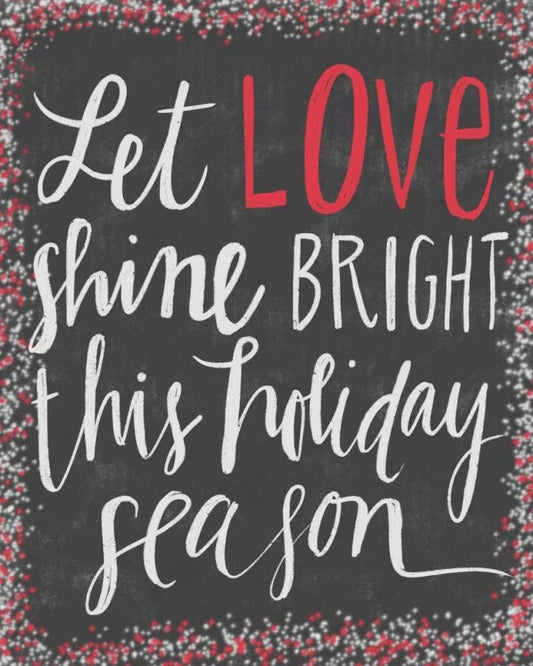 Let LOVe
shine BRIGHT
this holiday
season